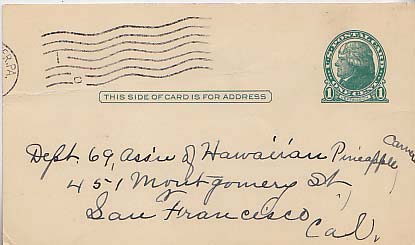 ER, PA.
THIS SIDE OF CARD IS FOR ADDRESS
1 1
Dept 69, Ass'n of Hawaiian Pineapple
451 Montgomery St,
San Francisco
Cal.